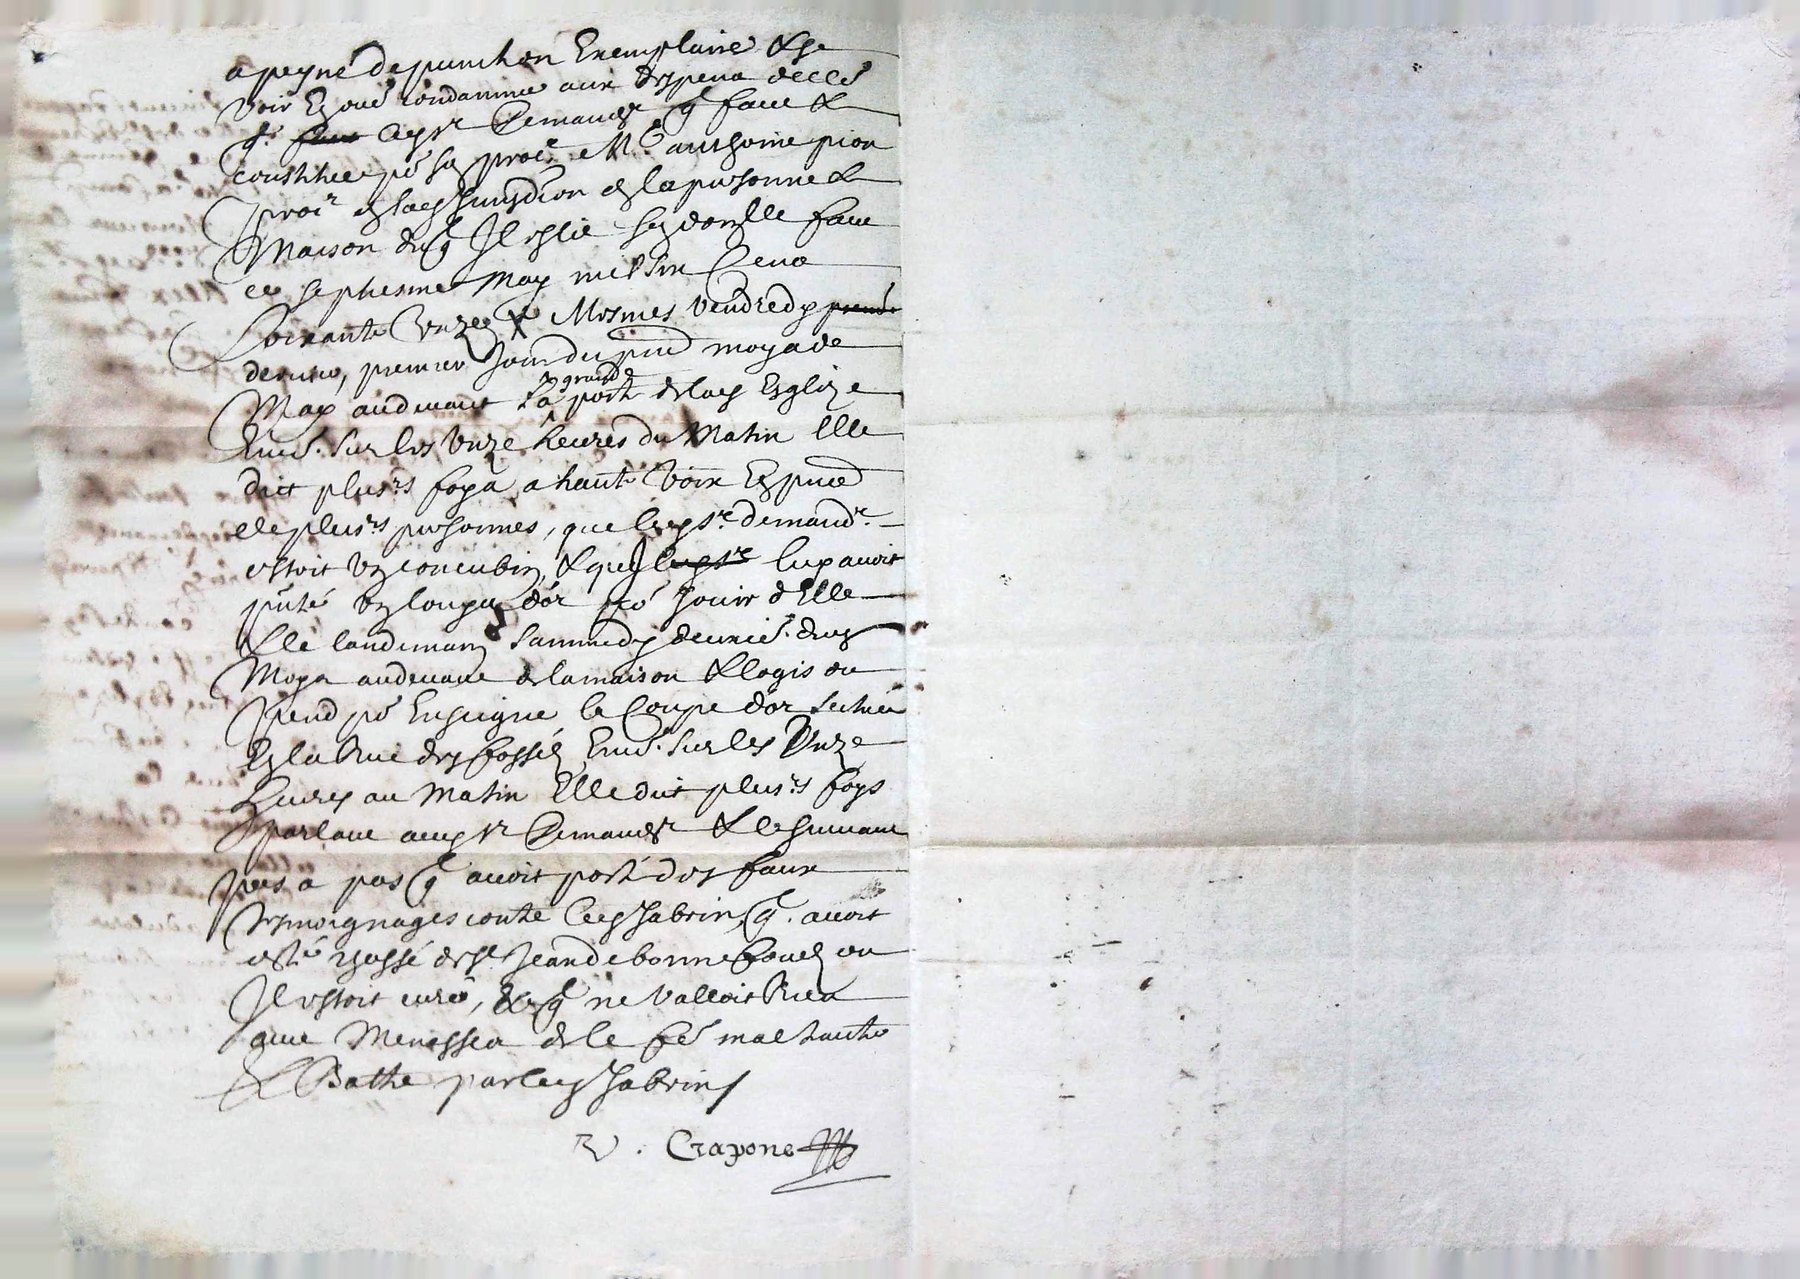 a peyne de punition Exemplaire & se
voir Ez oue condamnee aux despens de ces
q. led sr Demandr q faict &
constitue po sy procr Me anthoine pion
procr ez lad Jurisdion ez la personne &
Maison duq Il eslit sy domlle faict
ce septiesme May mil six Cens
Soixante Unze X Mesmes vendredy premr
dernier, premier Jour du pnt moys de
May audevant la grande porte de lad Esglize
Envir. sur les Unze heures du Matin Elle
dict plusrs foys a haute voix Ez pnce
de plusrs personnes, que led sr demandr
estoit Un concubin, & quil led sr luy avoit
pnté Un louys d'or po Jouir d'Elle
& le landemain sammedy deuxie. dud
Moys audevant de la maison & logis ou
pend po Enseigne la Coupe d'or scituée
Ez la Rue des fossés Envir. sur les Unze
heures au Matin Elle dict plusrs foys
parlant aud sr Demandr & le suivant
pas a pas q avoit porté des faux
tesmoignages contre led Jabrin, q. avoit
esté chassé de St Jean de bonnefondz ou
Il estoit curé, & q ne valloit Rien
avec Menasses de le fe maltraitter
& Battre par led Jabrin /
R . Crapone